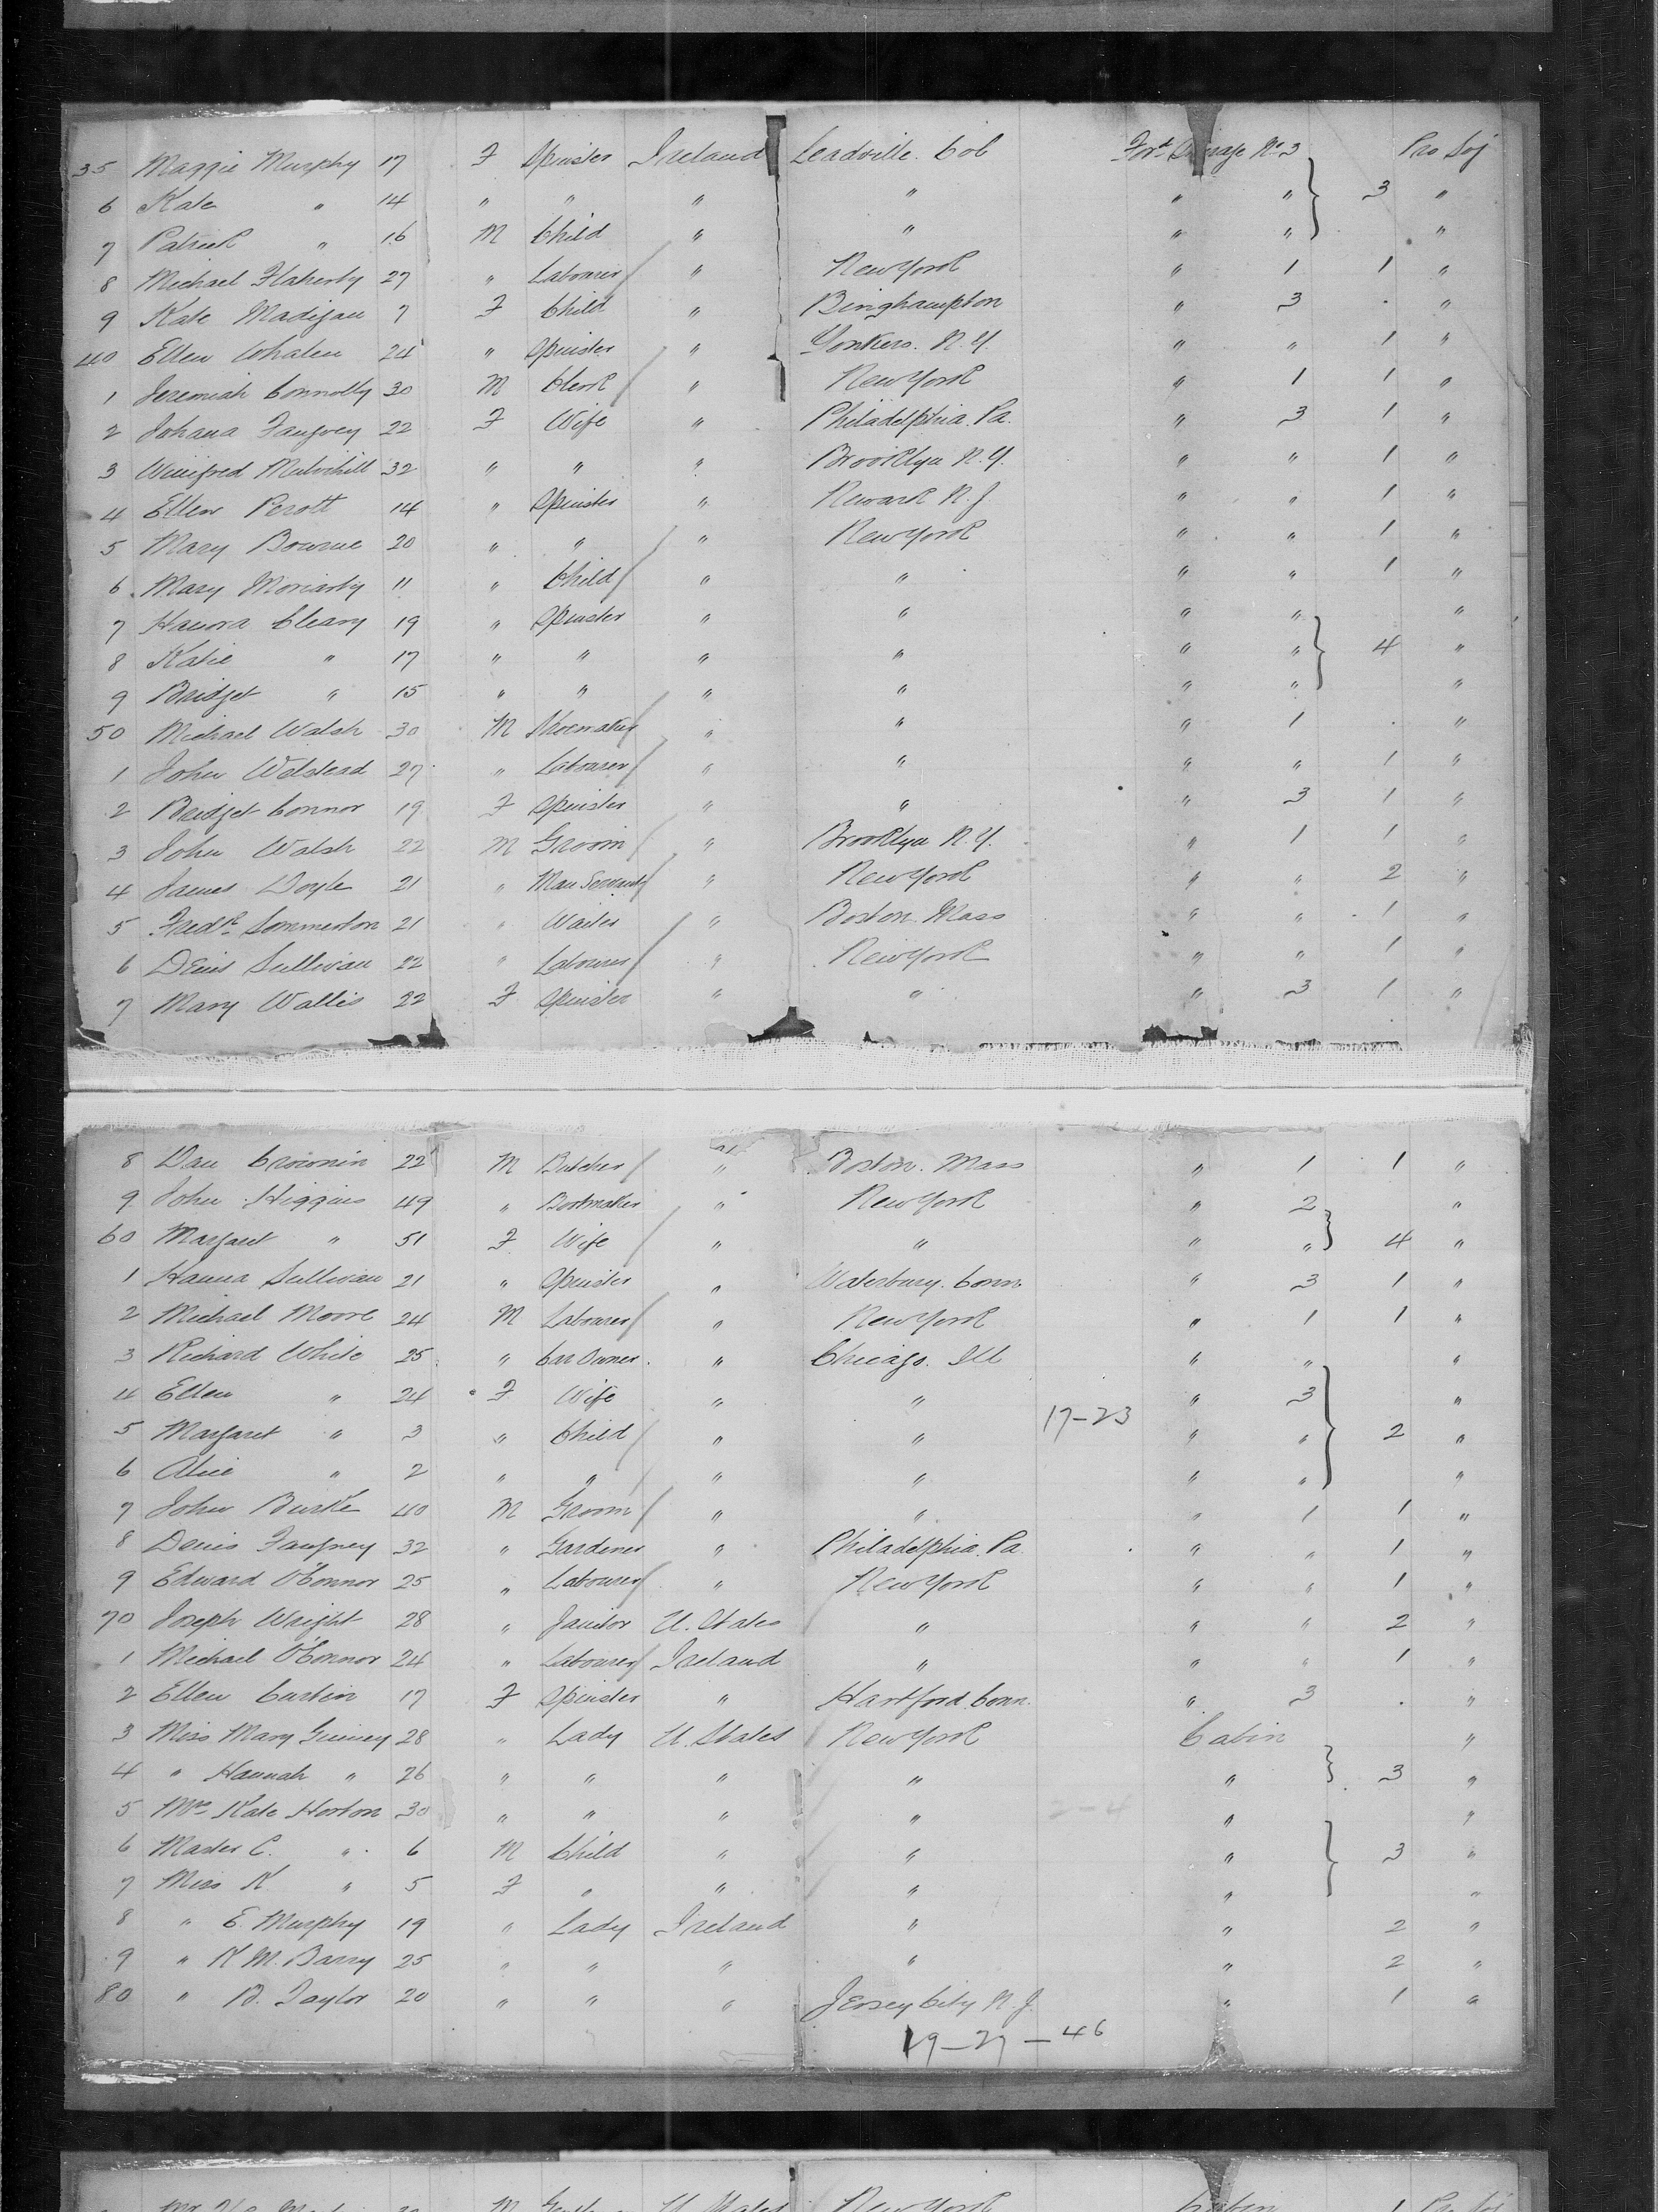 35 Maggie Murphy 17 F Spinster Ireland Leadville. Col For'd Steerage No 3 Pro Soj
6 Kate " 14 " " " " " " 3 "
7 Patrick " 16 M Child " " " " "
8 Michael Flaherty 27 " Labourer " New York " 1 1 "
9 Kate Madigan 7 F Child " Binghampton " 3 . "
40 Ellen Whalen 24 " Spinster " Yonkers. N.Y. " " 1 "
1 Jeremiah Connolly 30 M Clerk " New York " 1 1 "
2 Johana 22 F Wife " Philadelphia. Pa. " 3 1 "
3 Winifred Mulvihill 32 " " " Brooklyn N.Y. " " 1 "
4 Ellen Perott 14 " Spinster " Newark N.J " " 1 "
5 Mary Bourne 20 " " " New York " " 1 "
6 Mary Moriarty 11 " Child " " " " 1 "
7 Hanora Cleary 19 " Spinster " " " " "
8 Katie " 17 " " " " " " 4 "
9 Bridget " 15 " " " " " " "
50 Michael Walsh 30 M Shoemaker " " " 1 . "
1 John Welstead 27 " Labourer " " " " 1 "
2 Bridget Connor 19 F Spinster " " " 3 1 "
3 John Walsh 22 M Groom " Brooklyn N.Y. " 1 1 "
4 James Doyle 21 " Man Servant " New York " " 2 "
5 Fredk Sommerton 21 " Waiter " Boston. Mass " " 1 "
6 Denis Sullivan 22 " Labourer " New York " " 1 "
7 Mary Wallis 22 F Spinster " " " 3 1 "
8 Dan Cronnin 22 M Butcher " Boston. Mass " 1 1 "
9 John Higgins 49 " Bootmaker " New York " 2 "
60 Margaret " 51 F Wife " " " " 4 "
1 Hanna Sullivan 21 " Spinster " Waterbury. Conn " 3 1 "
2 Michael Moore 24 M Labourer " New York " 1 1 "
3 Richard White 25 " Car Owner. " Chicago. Ill " " "
4 Ellen " 24 F Wife " " " 3 "
5 Margaret " 3 " Child " " 17-23 " " 2 "
6 Alice " 2 " " " " " " "
7 John Burke 40 M Groom " " " 1 1 "
8 Denis 32 " Gardener " Philadelphia. Pa. " " 1 "
9 Edward O'Connor 25 " Labourer " New York " " 1 "
70 Joseph Wright 28 " Janitor U. States " " " 2 "
1 Michael O'Connor 24 " Labourer Ireland " " " 1 "
2 Ellen Curtin 17 F Spinster " Hartford. Conn. " 3 . "
3 Miss Mary Guiney 28 " Lady U. States New York Cabin "
4 " Hannah " 26 " " " " " 3 "
5 Mrs Kate Horton 30 " " " " 2-4 " "
6 Master C. " 6 M Child " " " 3 "
7 Miss K " 5 F " " " " "
8 " E. Murphy 19 " Lady Ireland " " 2 "
9 " K M. Barry 25 " " " " " 2 "
80 " B. Taylor 20 " " " Jersey City N.J. " 1 "
19-27-46
M U. States New York Cabin 1 Pro Soj